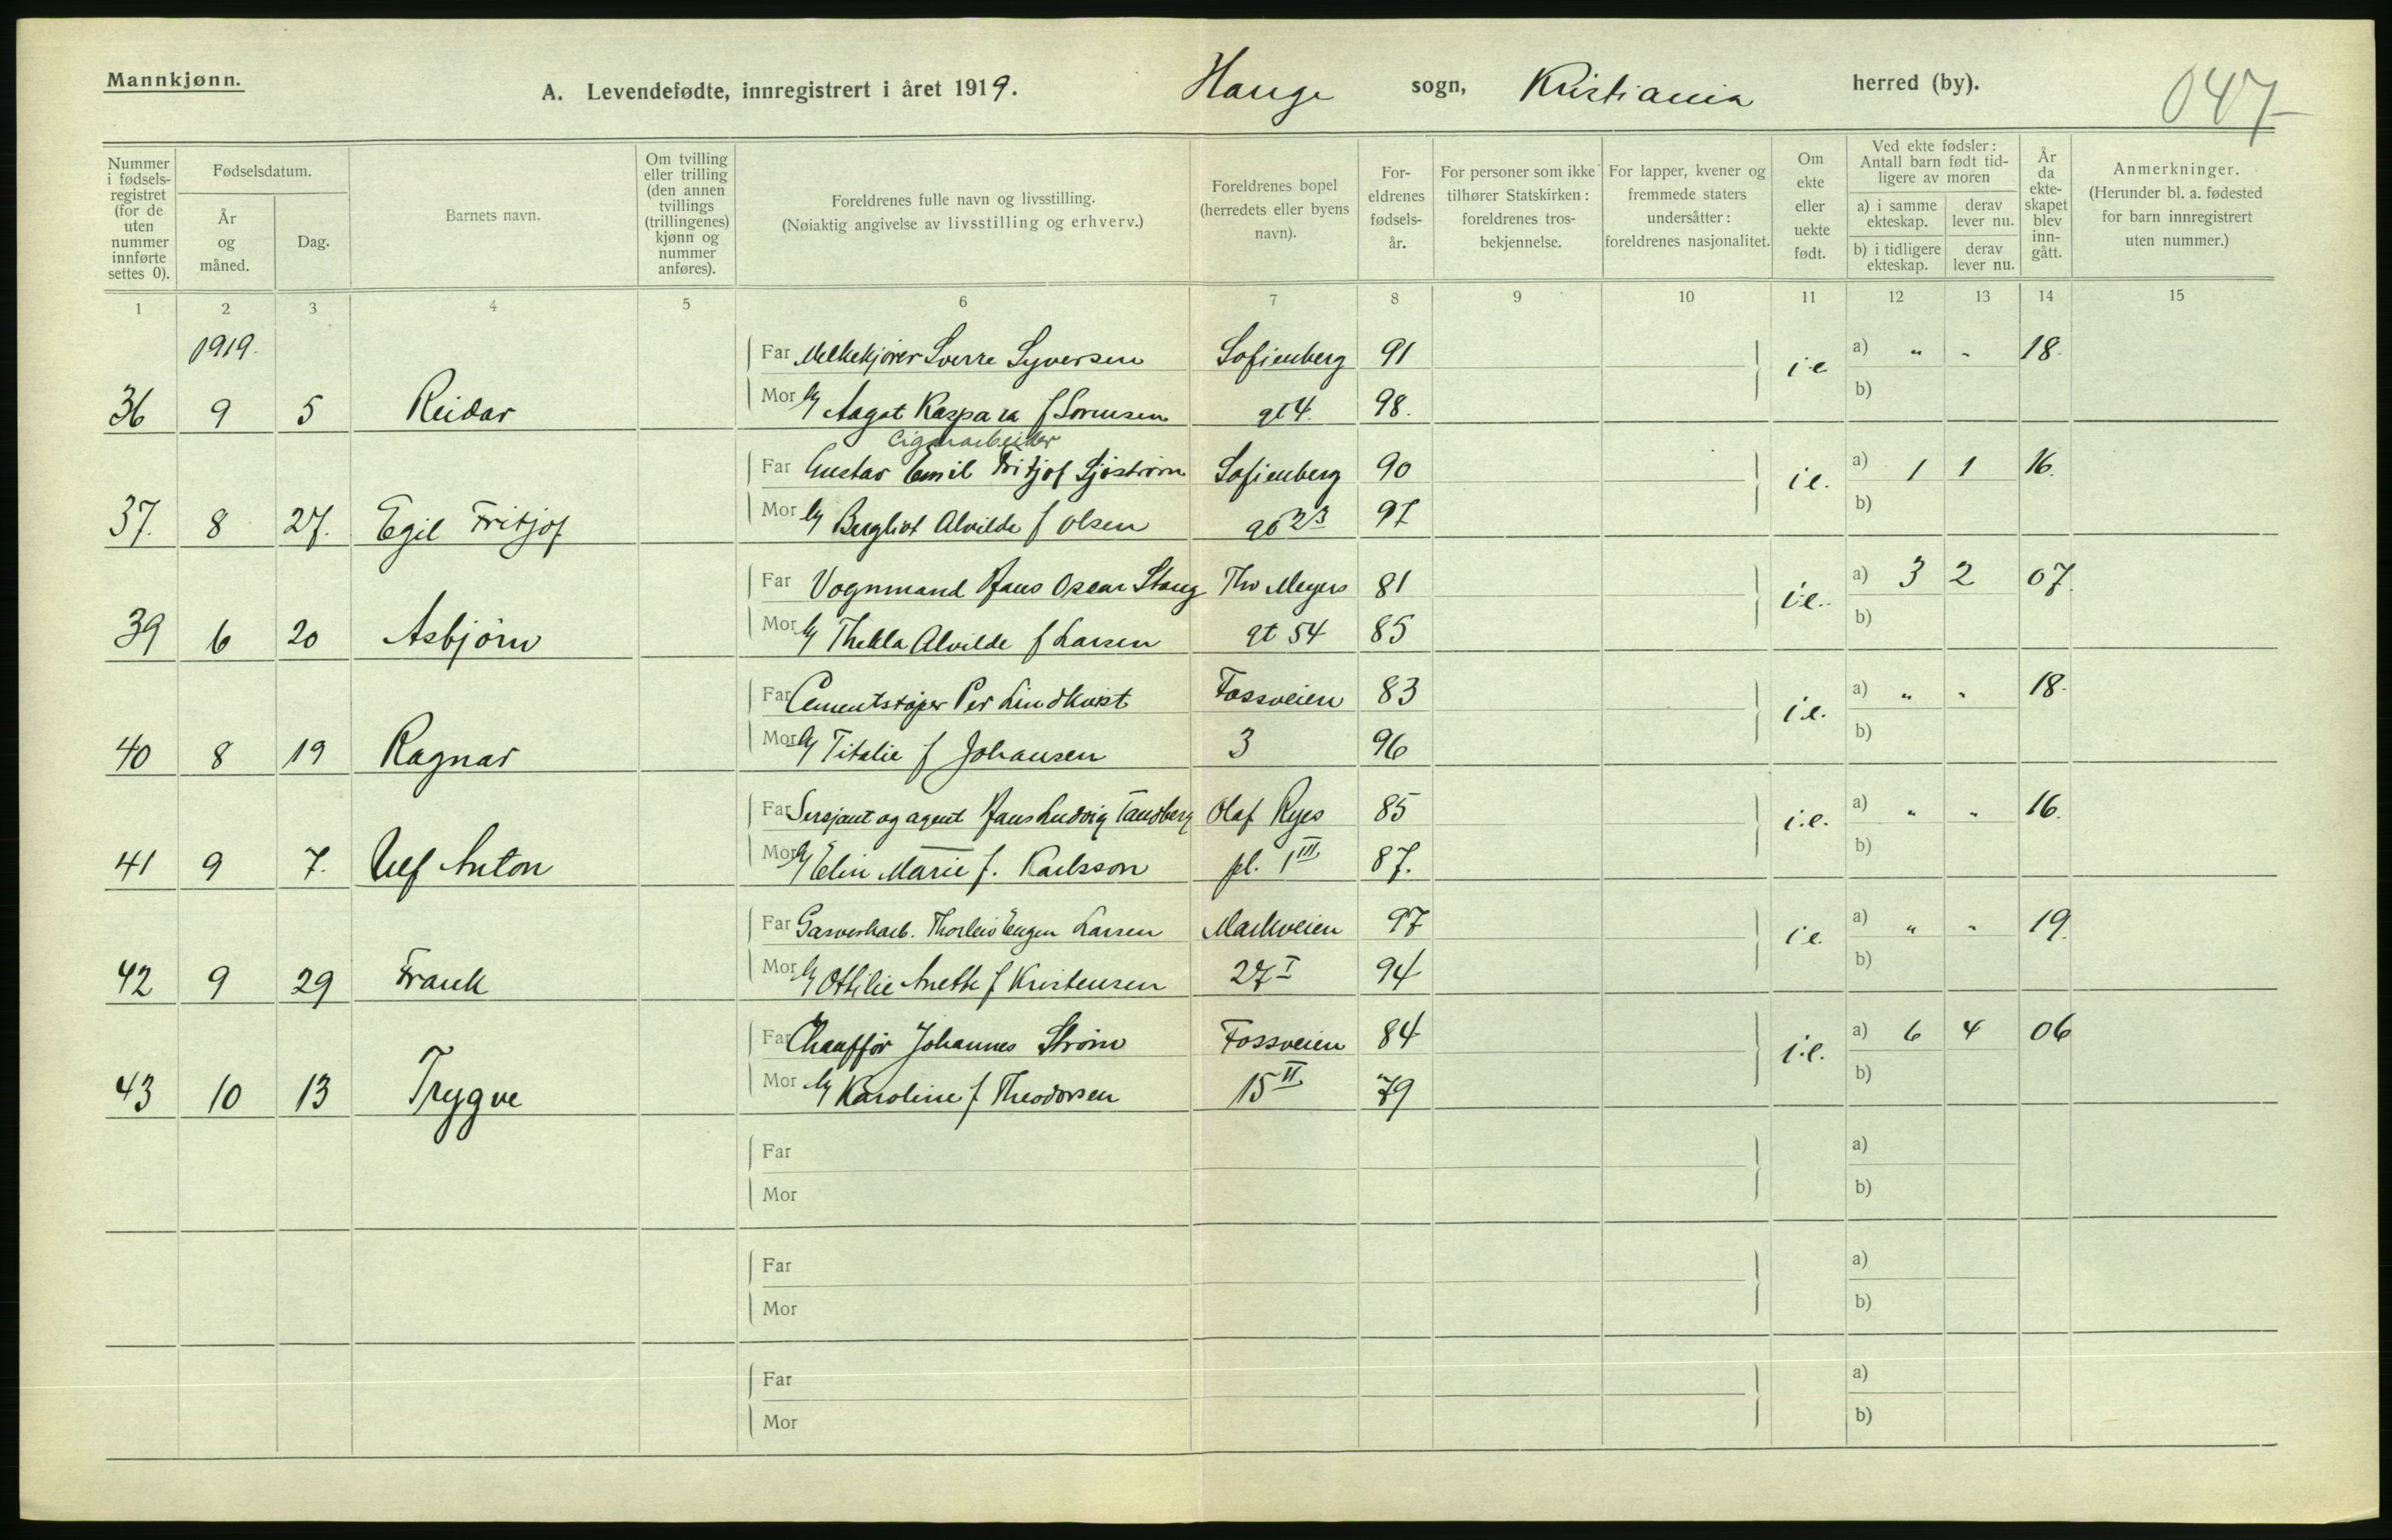 Mannkjønn.
A. Levendefødte, innregistrert i året 1919. Hauge sogn, Kristiania herred (by).
047
Nummer i fødsels-registret (for de uten nummer innførte settes 0).
Fødselsdatum.
År og måned.
Dag.
Barnets navn.
Om tvilling eller trilling (den annen tvillings (trillingenes) kjønn og nummer anføres).
Foreldrenes fulle navn og livsstilling.
(Nøiaktig angivelse av livsstilling og erhverv.)
Foreldrenes bopel (herredets eller byens navn).
For-eldrenes fødsels-år.
For personer som ikke tilhører Statskirken: foreldrenes tros-bekjennelse.
For lapper, kvener og fremmede staters undersåtter: foreldrenes nasjonalitet.
Om ekte eller uekte født.
Ved ekte fødsler: Antall barn født tid-ligere av moren
a) i samme ekteskap.
derav lever nu.
b) i tidligere ekteskap.
derav lever nu.
År da ekte-skapet blev inn-gått.
Anmerkninger.
(Herunder bl. a. fødested for barn innregistrert uten nummer.)
1 2 3 4 5 6 7 8 9 10 11 12 13 14 15
1919.
Far Melkekjører Sverre Syversen Sofienberg 91 i e a) " " 18.
36 9 5 Reidar Mor Aagot Kaspara f Sørensen gt 4. 98. b)
Cigararbeider
Far Gustav Emil Fritjof Sjøstrøm Sofienberg 90 i e. a) 1 1 16.
37. 8 27. Egil Fritjof Mor Bergliot Alvilde f Olsen gt 23 97 b)
Far Vognmand Hans Oscar Stang Thv Meyers 81 i.e. a) 3 2 07.
39 6 20 Asbjørn Mor Thekla Alvilde f Larsen gt 54 85 b)
Far Cementstøper Per Lindkvist Fossveien 83 i.e. a) " " 18.
40 8 19 Ragnar Mor Titalie f Johansen 3 96 b)
Far Sersjant og agent Hans Ludvig Tandberg Olaf Ryes 85 i.e. a) " " 16.
41 9 7. Ulf Anton Mor Elin Marie f. Karlsson pl. 1 III 87. b)
Far Garveriarb. Thorleiv Eugen Larsen Markveien 97 i e. a) " " 19.
42 9 29 Frank Mor Ottilie Anette f Kristensen 27 I 94 b)
Far Chauffør Johannes Strøm Fossveien 84 i.e. a) 6 4 06
43 10 13 Trygve Mor Karoline f Theodorsen 15 II 79 b)
Far a)
Mor b)
Far a)
Mor b)
Far a)
Mor b)